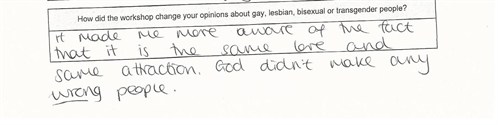 How did the workshop change your opinions about gay, lesbian, bisexual or transgender people?
it made me more aware of the fact
that it is the same love and
same attraction. God didn't make any
wrong people.